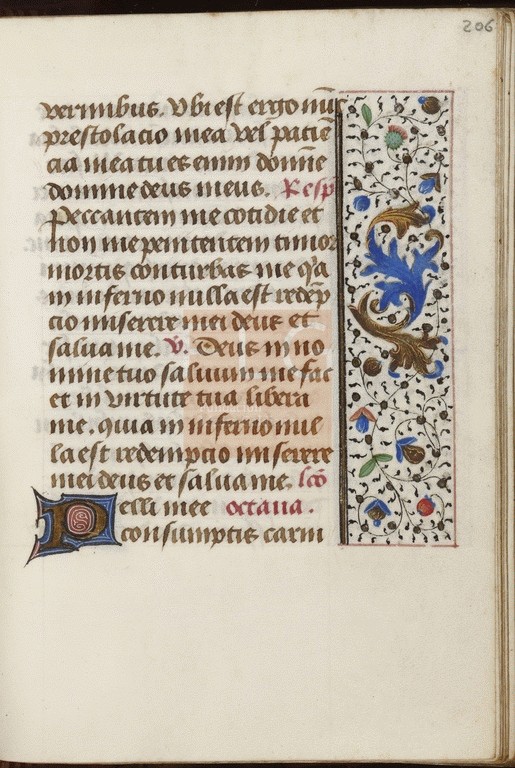 206
vermibus. Ubi est ergo nūc
prestolacio mea vel paciē
cia mea tu es enim domine
domine deus meus. Resp
Peccantem me cotidie et
non me penitentem timor
mortis conturbat me q̄a
in inferno nulla est redēp
cio miserere mei deus et
salua me. v. Deus in no
mine tuo saluum me fac
et in virtute tua libera
me. quia in inferno nul
la est redempcio miserere
mei deus et salua me. lcō
Pelli mee octaua.
consumptis carni